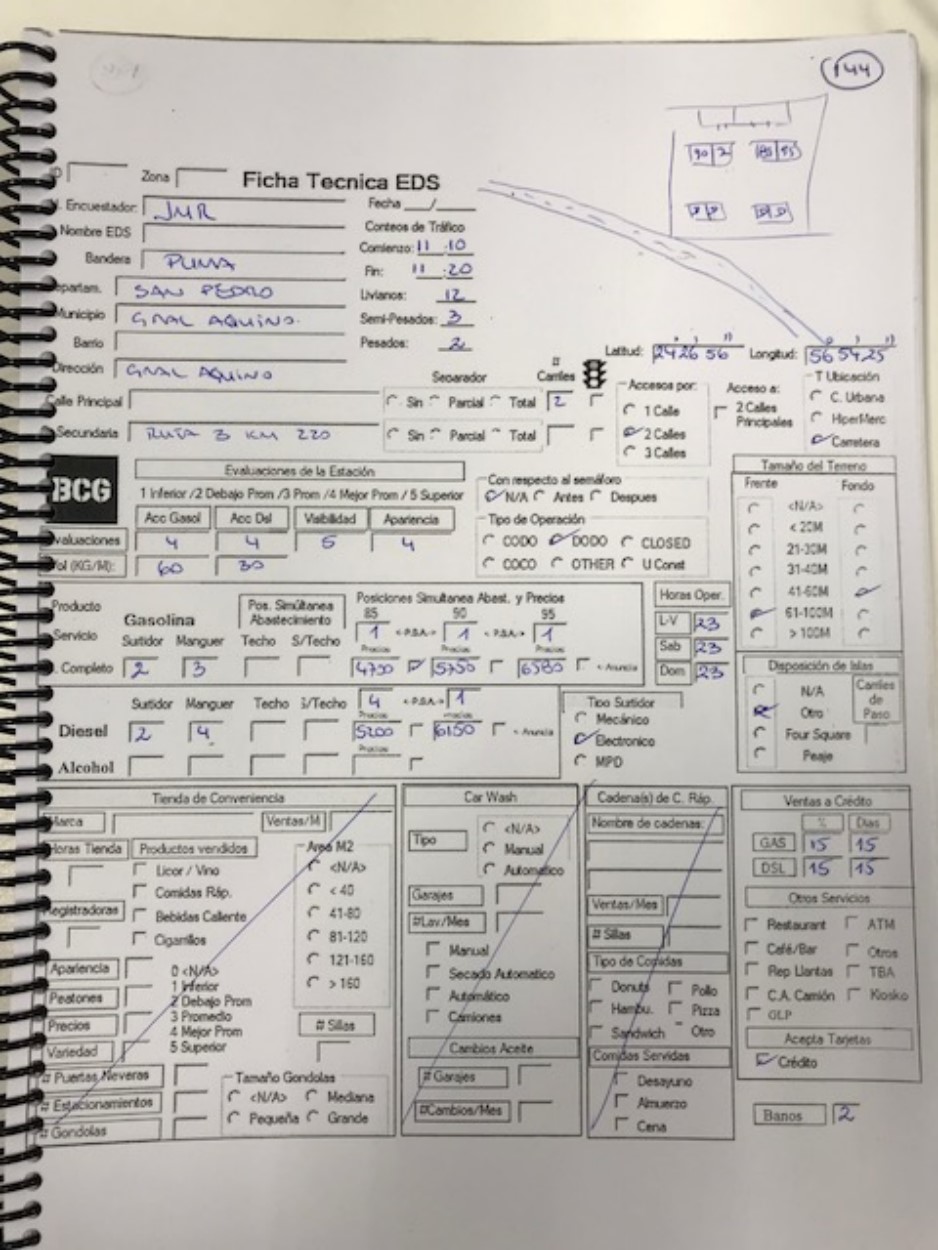 144
90 2 85 95
Zona
Ficha Tecnica EDS
Encuestador JMR
Fecha __/__
Nombre EDS
Conteos de Tráfico
Bandera PUMA
Comienzo: 11:10
Fin: 11:20
epartam. SAN PEDRO
Livianos: 12
Municipio GRAL AQUINO.
Semi-Pesados: 3
Barrio
Pesados: 2
Latitud: 24 26 56 Longitud: 56 54,25
Dirección GRAL AQUINO
Separador # Carriles
Accesos por: Acceso a: T Ubicación
Calle Principal Sin Parcial Total 2
1 Calle 2 Calles Principales C. Urbana
2 Calles HiperMerc
Secundaria RUTA 3 KM 220 Sin Parcial Total
3 Calles Carretera
BCG
Evaluaciones de la Estación
1 Inferior /2 Debajo Prom /3 Prom /4 Mejor Prom /5 Superior
Acc Gasol Acc Dsl Visibilidad Apariencia
valuaciones 4 4 5 4
ol (KG/M): 60 30
Con respecto al semáforo
N/A Antes Despues
Tipo de Operación
CODO DODO CLOSED
COCO OTHER U Const
Tamaño del Terreno
Frente Fondo
<N/A>
< 20M
21-30M
31-40M
41-60M
61-100M
> 100M
Producto
Servicio
Gasolina
Pos. Simúltanea Abastecimiento
Posiciones Simultanea Abast. y Precios
85 90 95
1 <-P.S.A.-> 1 <-P.S.A.-> 1
Surtidor Manguer Techo S/Techo
Precios Precios Precios
Completo 2 3 4750 5750 6580 <-Anuncia
Horas Oper.
L-V 23
Sab 23
Dom 23
Surtidor Manguer Techo S/Techo 4 <-P.S.A.-> 1
Precios Precios
Diesel 2 4 5200 6150 <-Anuncia
Precios
Alcohol
Tipo Surtidor
Mecánico
Electronico
MPD
Disposición de Islas
N/A Carriles de Paso
Otro
Four Square
Peaje
Tienda de Conveniencia
Marca Ventas/M
Horas Tienda Productos vendidos Area M2
Licor / Vino <N/A>
Comidas Ráp. < 40
Registradoras Bebidas Caliente 41-80
Cigarrillos 81-120
121-160
> 160
Apariencia 0 <N/A>
1 Inferior
Peatones 2 Debajo Prom
Precios 3 Promedio # Sillas
4 Mejor Prom
Variedad 5 Superior
# Puertas Neveras
Tamaño Gondolas
# Estacionamientos <N/A> Mediana
Pequeña Grande
# Gondolas
Car Wash
Tipo <N/A>
Manual
Automatico
Garajes
#Lav/Mes
Manual
Secado Automatico
Automático
Camiones
Cambios Aceite
# Garajes
#Cambios/Mes
Cadena(s) de C. Ráp.
Nombre de cadenas:
Ventas/Mes
# Sillas
Tipo de Comidas
Donuts Pollo
Hambu. Pizza
Sandwich Otro
Comidas Servidas
Desayuno
Almuerzo
Cena
Ventas a Crédito
% Dias
GAS 15 15
DSL 15 15
Otros Servicios
Restaurant ATM
Café/Bar Otros
Rep Llantas TBA
C.A. Camión Kiosko
GLP
Acepta Tarjetas
Crédito
Banos 2